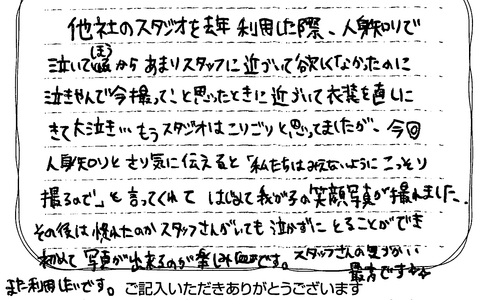 他社のスタジオを去年利用した際、人見知りで
泣いて(ほう)から あまりスタッフに近づいて欲しくなかったのに
泣きやんで今撮って、と思ったときに近づいて衣装を直しに
きて大泣き… もうスタジオはこりごりと思ってましたが、今回
人見知りとさり気に伝えると「私たちはみえないようにこっそり
撮るので」と言ってくれて はじめて我が子の笑顔写真が撮れました。
その後は慣れたのかスタッフさんがいても泣かずにとることができ
初めて写真が出来るのが楽しみです。スタッフさんの気づかい
最高です
また利用したいです。 ご記入いただきありがとうございます